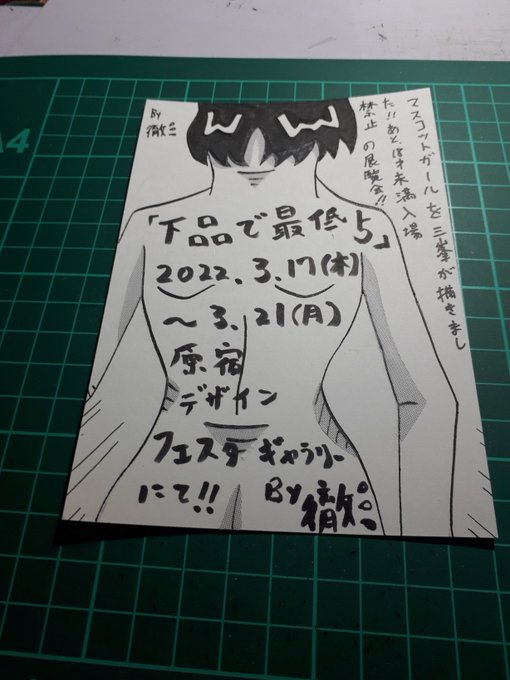 A4
マスコットガールを三峯が描きまし
た!!あと18才未満入場
禁止の展覧会!!
By
「下品で最低5」
2022.3.17(木)
～3.21(月)
原宿
デザイン
フェスタギャラリー
にて!! By